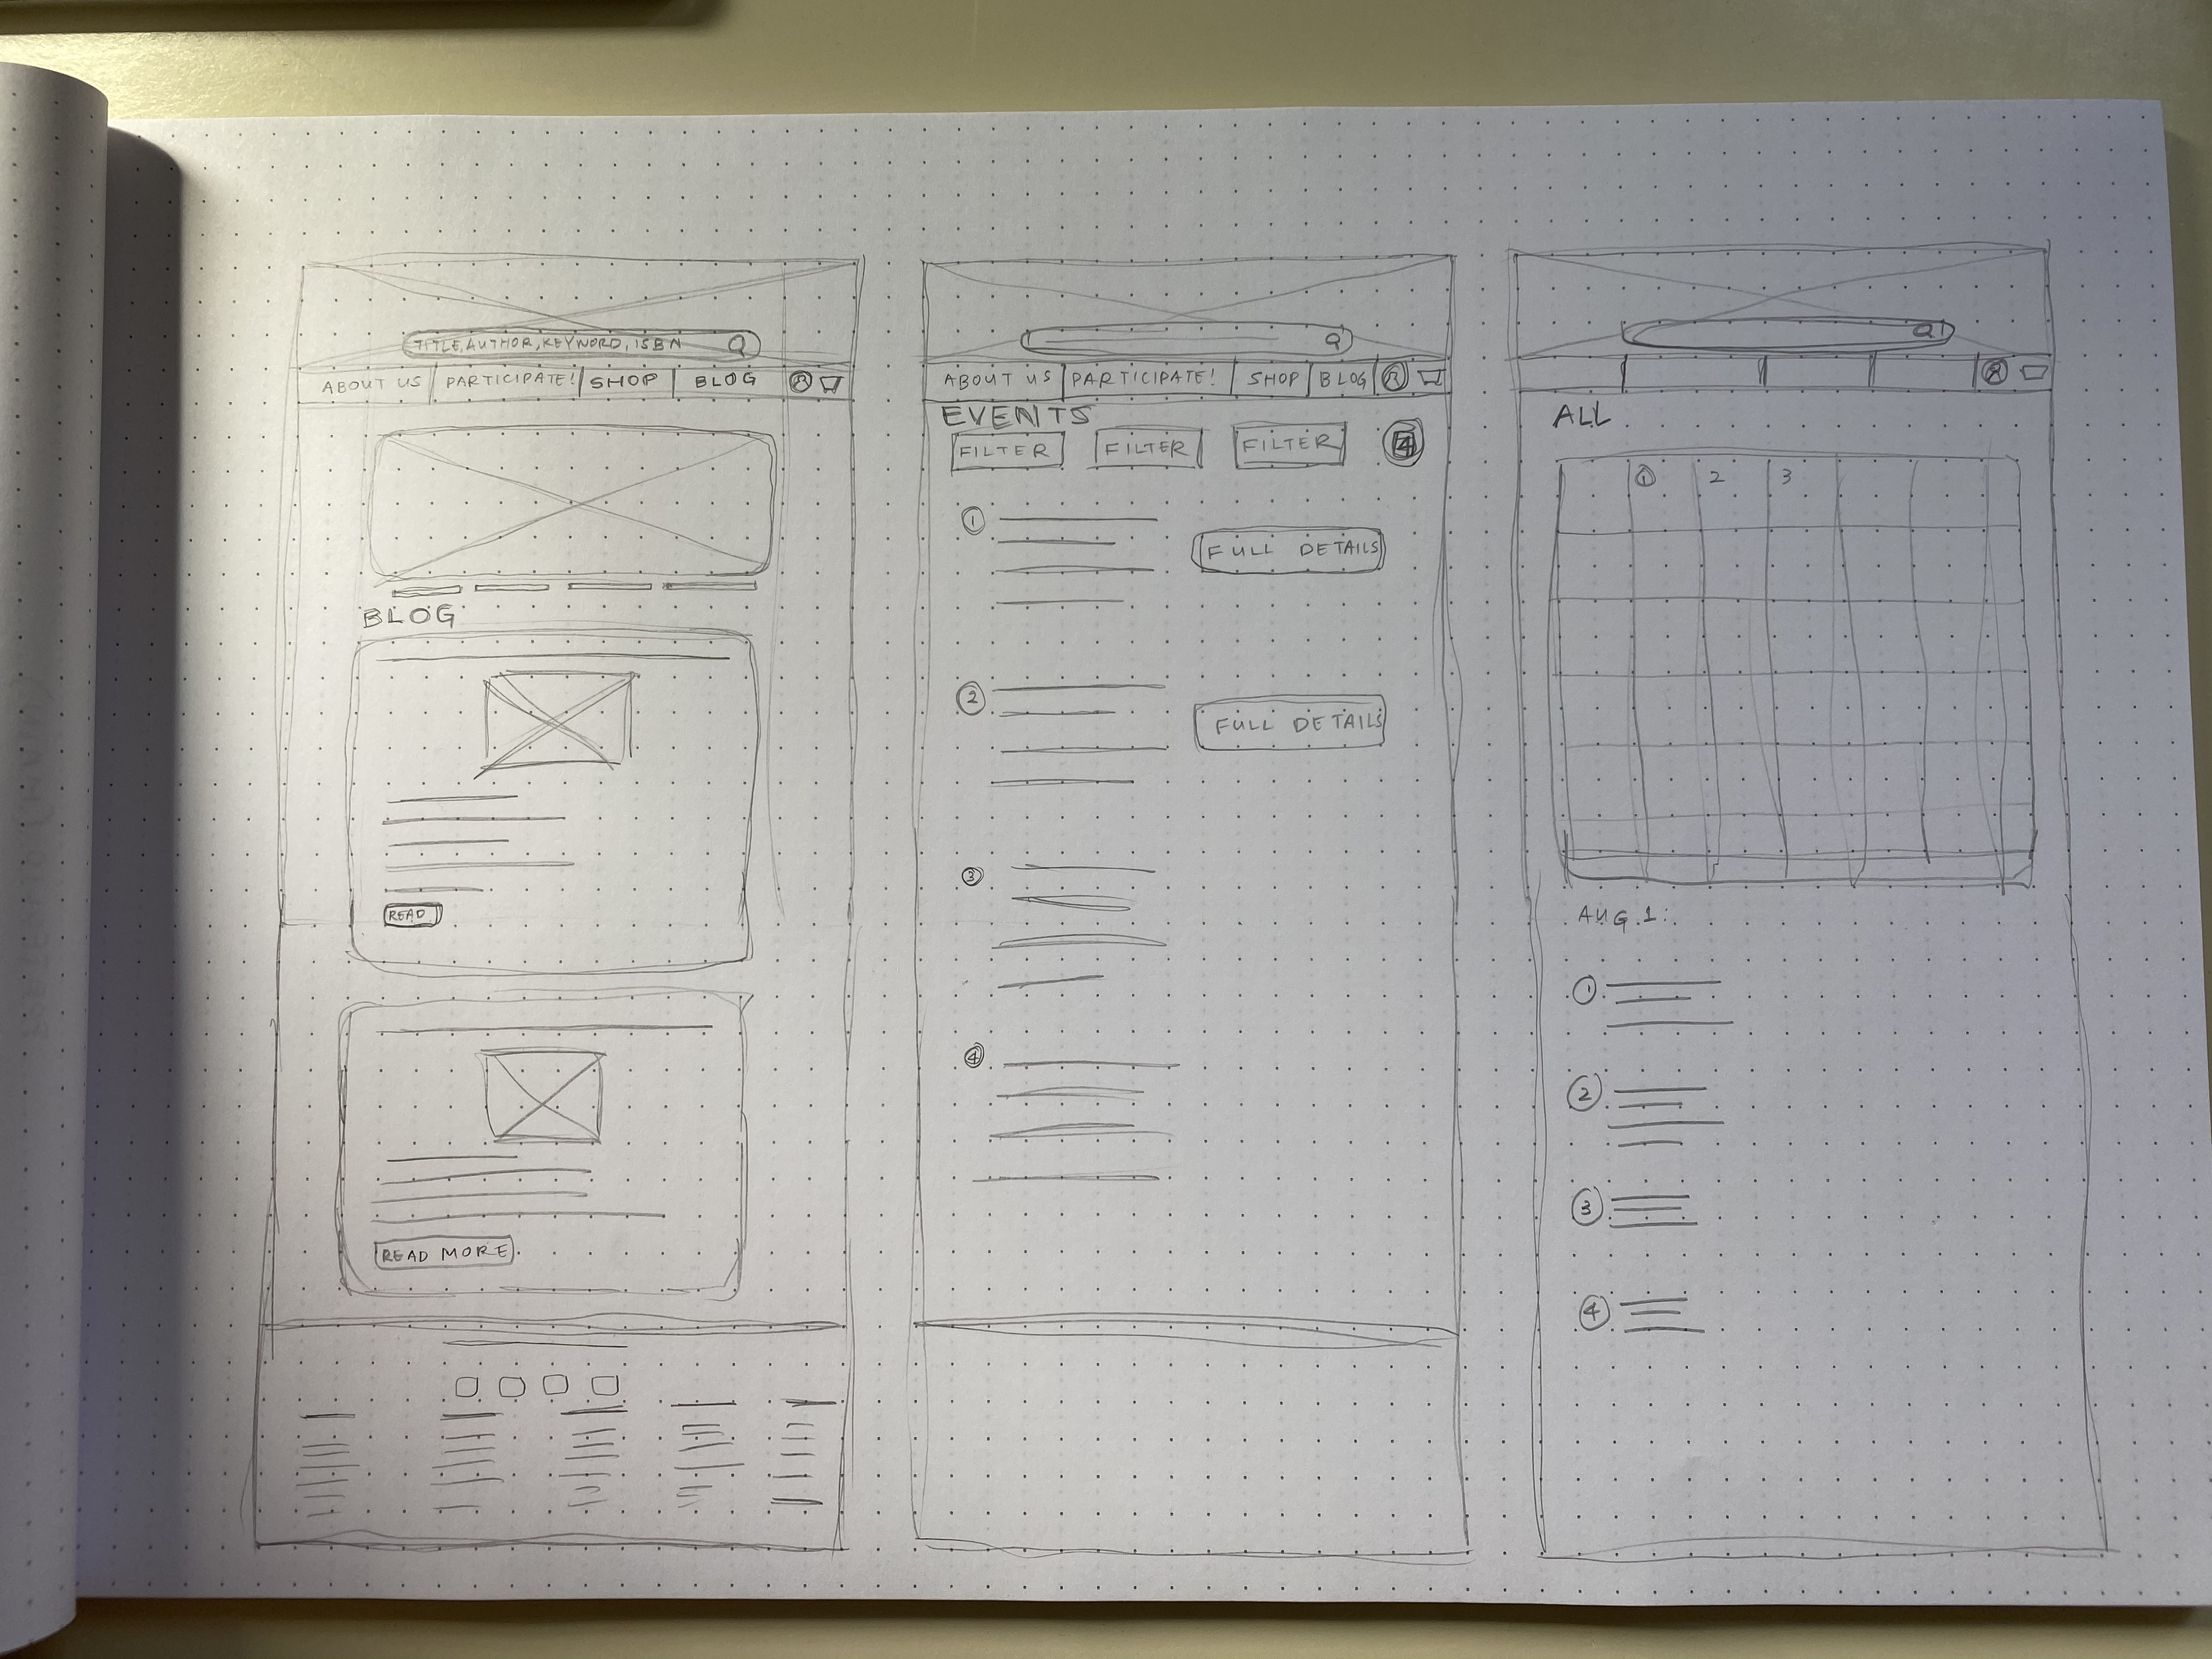 TITLE, AUTHOR, KEYWORD, ISBN
ABOUT US PARTICIPATE! SHOP BLOG
BLOG
READ
READ MORE
ABOUT US PARTICIPATE! SHOP BLOG
EVENTS
FILTER FILTER FILTER
1 FULL DETAILS
2 FULL DETAILS
3
4
ALL
1 2 3
AUG 1:
1
2
3
4